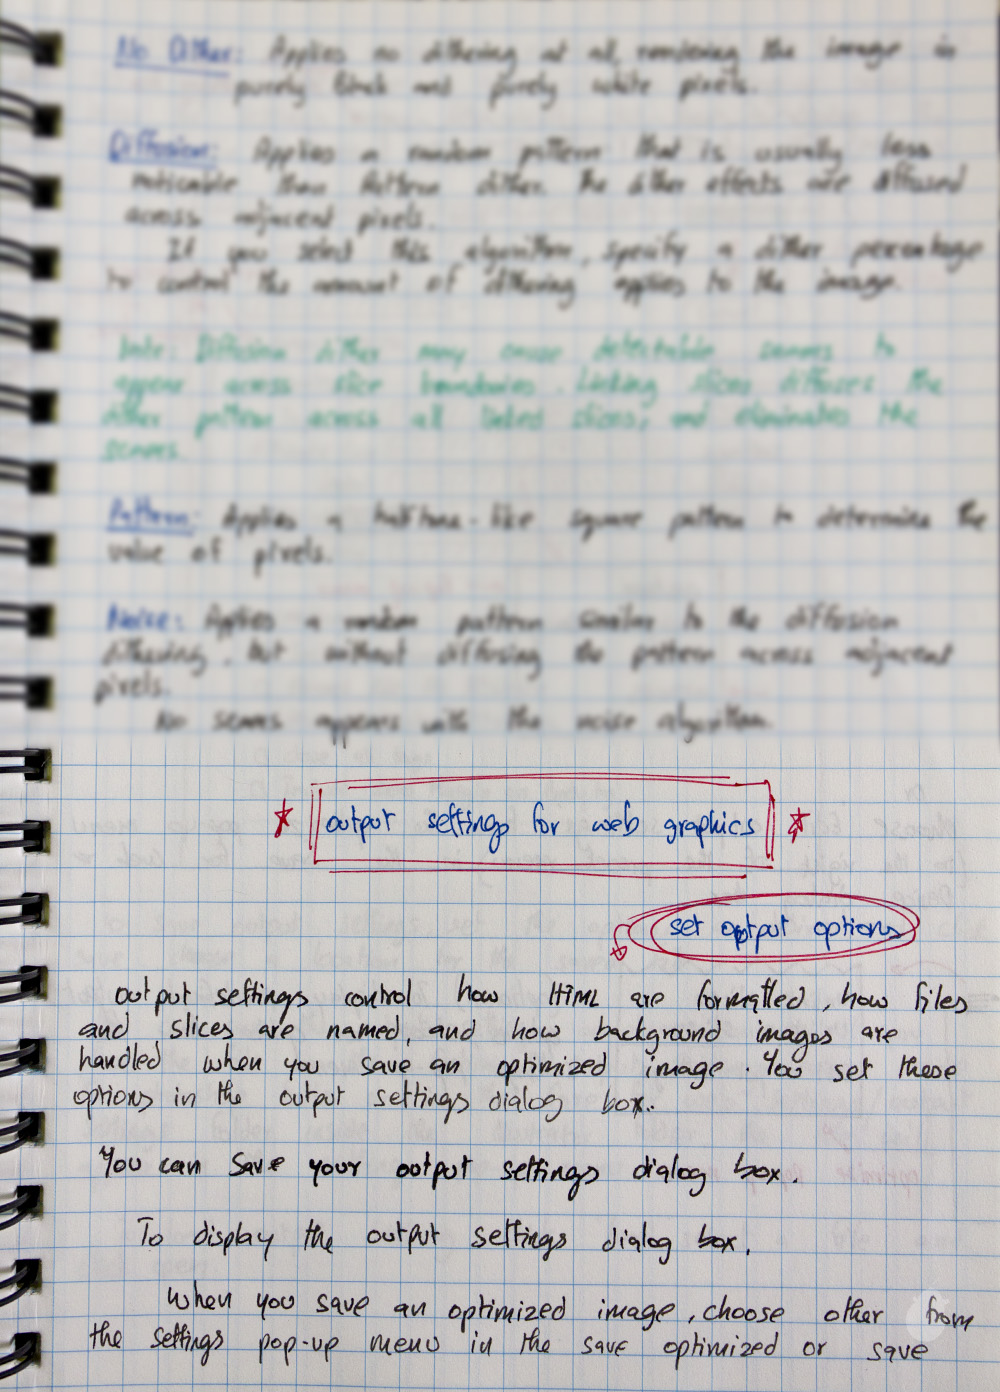 No Dither: Applies no dithering at all, rendering the image in
purely black and purely white pixels.
Diffusion: Applies a random pattern that is usually less
noticable than Pattern dither. The dither effects are diffused
across adjacent pixels.
If you select this algorithm, specify a dither percentage
to control the amount of dithering applies to the image.
Note: Diffusion dither may cause detectable seams to
appear across slice boundaries. Linking slices diffuses the
dither pattern across all linked slices, and eliminates the
seams.
Pattern: Applies a halftone-like square pattern to determine the
value of pixels.
Noise: Applies a random pattern similar to the diffusion
dithering, but without diffusing the pattern across adjacent
pixels.
No seams appears with the noise algorithm.
output settings for web graphics
set output options
output settings control how HTML are formatted, how files
and slices are named, and how background images are
handled when you save an optimized image. You set these
options in the output settings dialog box.
You can save your output settings dialog box.
To display the output settings dialog box,
when you save an optimized image, choose other from
the settings pop-up menu in the save optimized or save